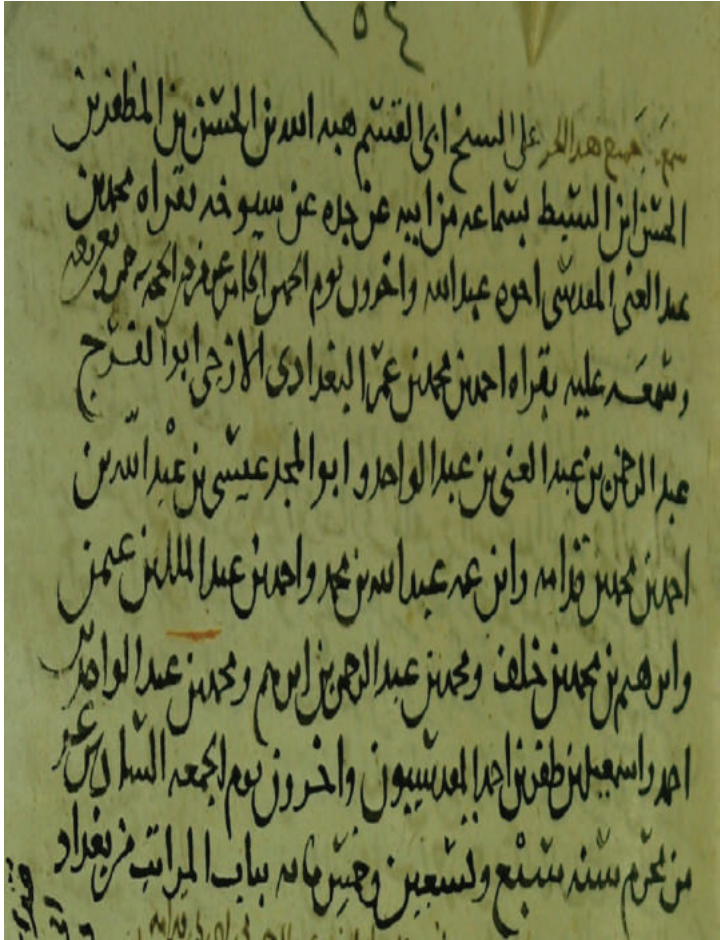 ١٥٤
سمع جميع هذا الجزء على الشيخ ابي القسم هبه الله بن الحسن بن المظفر بن
الحسن ابن السبط بسماعه من ابيه عن جده عن شيوخه بقراه محمد بن
عبد الغني المقدسي اخوه عبد الله واخرون يوم الخميس
وسمعه عليه بقراه احمد بن محمد بن عمر البغدادي الازجي ابو الفرج
عبد الرحمن بن عبد الغني بن عبد الواحد و ابو المجد عيسى بن عبد الله بن
احمد بن محمد بن قدامه وابن عمه عبد الله بن محمد واحمد بن عبد الملك بن عثمن
وابرهيم بن محمد بن خلف ومحمد بن عبد الرحمن بن ابرهيم ومحمد بن عبد الواحد بن
احمد واسمعيل بن ظفر بن احمد المقدسيون واخرون يوم الجمعه السادس عشر
من محرم سنه سبع وتسعين وخمس مايه بباب المراتب من بغداد